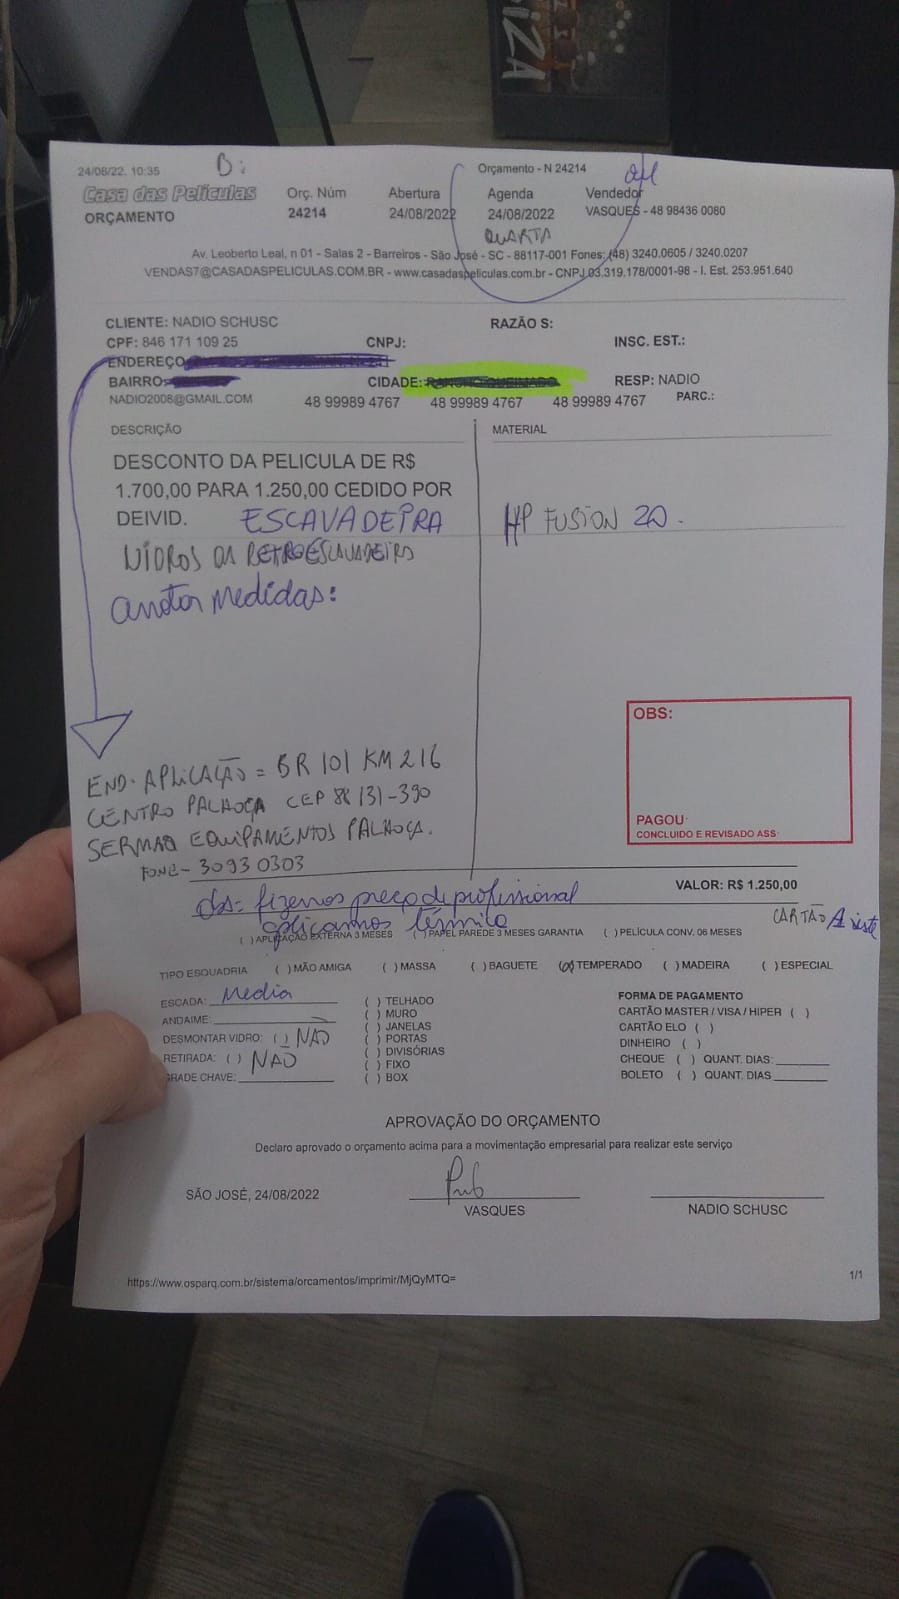 IZA
24/08/22. 10:35
B:
Orçamento - N 24214
Casa das Películas
Orç. Núm
Abertura
Agenda
Vendedor
ORÇAMENTO
24214
24/08/2022
24/08/2022
VASQUES - 48 98436 0080
QUARTA
Av. Leoberto Leal, n 01 - Salas 2 - Barreiros - São José - SC - 88117-001 Fones: (48) 3240.0605 / 3240.0207
VENDAS7@CASADASPELICULAS.COM.BR - www.casadaspeliculas.com.br - CNPJ 03.319.178/0001-98 - I. Est. 253.951.640
CLIENTE: NADIO SCHUSC
RAZÃO S:
CPF: 846 171 109 25
CNPJ:
INSC. EST.:
ENDEREÇO
BAIRRO:
CIDADE:
RESP: NADIO
NADIO2008@GMAIL.COM
48 99989 4767 48 99989 4767 48 99989 4767
PARC.:
DESCRIÇÃO
MATERIAL
DESCONTO DA PELICULA DE R$
1.700,00 PARA 1.250,00 CEDIDO POR
DEIVID. ESCAVADEIRA
HP FUSION 20.
VIDROS DA RETROESCAVADEIRA
anotar medidas:
OBS:
PAGOU:
CONCLUIDO E REVISADO ASS:
END. APLICAÇÃO = BR 101 KM 216
CENTRO PALHOÇA CEP 88131-390
SERMAQ EQUIPAMENTOS PALHOÇA.
FONE - 3093 0303
VALOR: R$ 1.250,00
obs= fizemos preço de profissional
aplicarmos térmico
CARTÃO A vista
( ) APLICAÇÃO EXTERNA 3 MESES ( ) PAPEL PAREDE 3 MESES GARANTIA ( ) PELÍCULA CONV. 06 MESES
TIPO ESQUADRIA ( ) MÃO AMIGA ( ) MASSA ( ) BAGUETE ( ) TEMPERADO ( ) MADEIRA ( ) ESPECIAL
ESCADA: Media
ANDAIME:
DESMONTAR VIDRO: ( ) NÃO
RETIRADA: ( ) NÃO
GRADE CHAVE:
( ) TELHADO
( ) MURO
( ) JANELAS
( ) PORTAS
( ) DIVISÓRIAS
( ) FIXO
( ) BOX
FORMA DE PAGAMENTO
CARTÃO MASTER / VISA / HIPER ( )
CARTÃO ELO ( )
DINHEIRO ( )
CHEQUE ( ) QUANT. DIAS:
BOLETO ( ) QUANT. DIAS
APROVAÇÃO DO ORÇAMENTO
Declaro aprovado o orçamento acima para a movimentação empresarial para realizar este serviço
SÃO JOSÉ, 24/08/2022
VASQUES
NADIO SCHUSC
https://www.osparq.com.br/sistema/orcamentos/imprimir/MjQyMTQ=
1/1